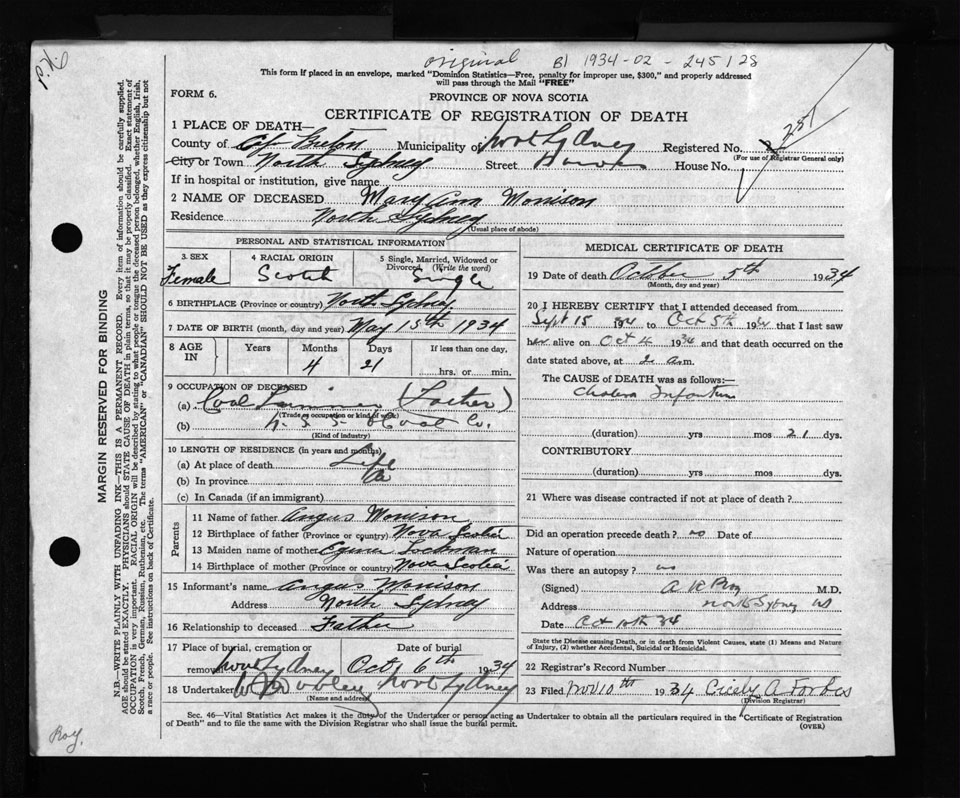 original B) 1934-02-245128
P.N.
This form if placed in an envelope, marked "Dominion Statistics—Free, penalty for improper use, $300," and properly addressed
will pass through the Mail "FREE"
FORM 6.
PROVINCE OF NOVA SCOTIA
CERTIFICATE OF REGISTRATION OF DEATH
1 PLACE OF DEATH—
County of Cape Breton Municipality of North Sydney Registered No. 251
(For use of Registrar General only)
City or Town North Sydney Street House No.
If in hospital or institution, give name
2 NAME OF DECEASED Mary Ann Morrison
Residence North Sydney
(Usual place of abode)
PERSONAL AND STATISTICAL INFORMATION
3 SEX 4 RACIAL ORIGIN 5 Single, Married, Widowed or Divorced, (Write the word)
Female Scotch Single
6 BIRTHPLACE (Province or country) North Sydney
7 DATE OF BIRTH (month, day and year) May 15th 1934
8 AGE IN Years Months Days If less than one day,
4 21 hrs. or min.
9 OCCUPATION OF DECEASED
(a) Coal (Father)
(Trade, occupation or kind of work)
(b) N.S.S. & Coal Co.
(Kind of industry)
10 LENGTH OF RESIDENCE (in years and months)
(a) At place of death Life
(b) In province Do
(c) In Canada (if an immigrant)
Parents
11 Name of father Angus Morrison
12 Birthplace of father (Province or country) Nova Scotia
13 Maiden name of mother
14 Birthplace of mother (Province or country) Nova Scotia
15 Informant's name Angus Morrison
Address North Sydney
16 Relationship to deceased Father
17 Place of burial, cremation or removal Date of burial
North Sydney Oct 6th 1934
18 Undertaker North Sydney
(Name and address)
MEDICAL CERTIFICATE OF DEATH
19 Date of death October 5th 1934
(Month, day and year)
20 I HEREBY CERTIFY that I attended deceased from
Sept 15 1934 to Oct 5th 1934 that I last saw
her alive on Oct 4 1934 and that death occurred on the
date stated above, at 2 a.m.
The CAUSE of DEATH was as follows:—
Cholera Infantum
(duration) yrs mos 21 dys.
CONTRIBUTORY
(duration) yrs mos dys.
21 Where was disease contracted if not at place of death?
Did an operation precede death? no Date of
Nature of operation
Was there an autopsy? no
(Signed) M.D,
Address North Sydney NS
Date Oct 10th 34
State the Disease causing Death, or in death from Violent Causes, state (1) Means and Nature
of Injury, (2) whether Accidental, Suicidal or Homicidal.
22 Registrar's Record Number
23 Filed Nov 10th 1934 Cicely A Forbes
(Division Registrar)
Sec. 46—Vital Statistics Act makes it the duty of the Undertaker or person acting as Undertaker to obtain all the particulars required in the "Certificate of Registration
of Death" and to file the same with the Division Registrar who shall issue the burial permit.
(OVER)
MARGIN RESERVED FOR BINDING
N.B.—WRITE PLAINLY WITH UNFADING INK—THIS IS A PERMANENT RECORD. Every item of information should be carefully supplied.
AGE should be stated EXACTLY. PHYSICIANS should STATE CAUSE OF DEATH in plain terms, so that it may be properly classified. Exact statement of
OCCUPATION is very important. RACIAL ORIGIN will be described by stating to what people or tongue the deceased person belonged, whether English, Irish,
Scotch, French, German, Russian, Ruthenian, etc. The terms "AMERICAN" or "CANADIAN" SHOULD NOT BE USED as they express citizenship but not
a race or people. See instructions on back of Certificate.
Roy.